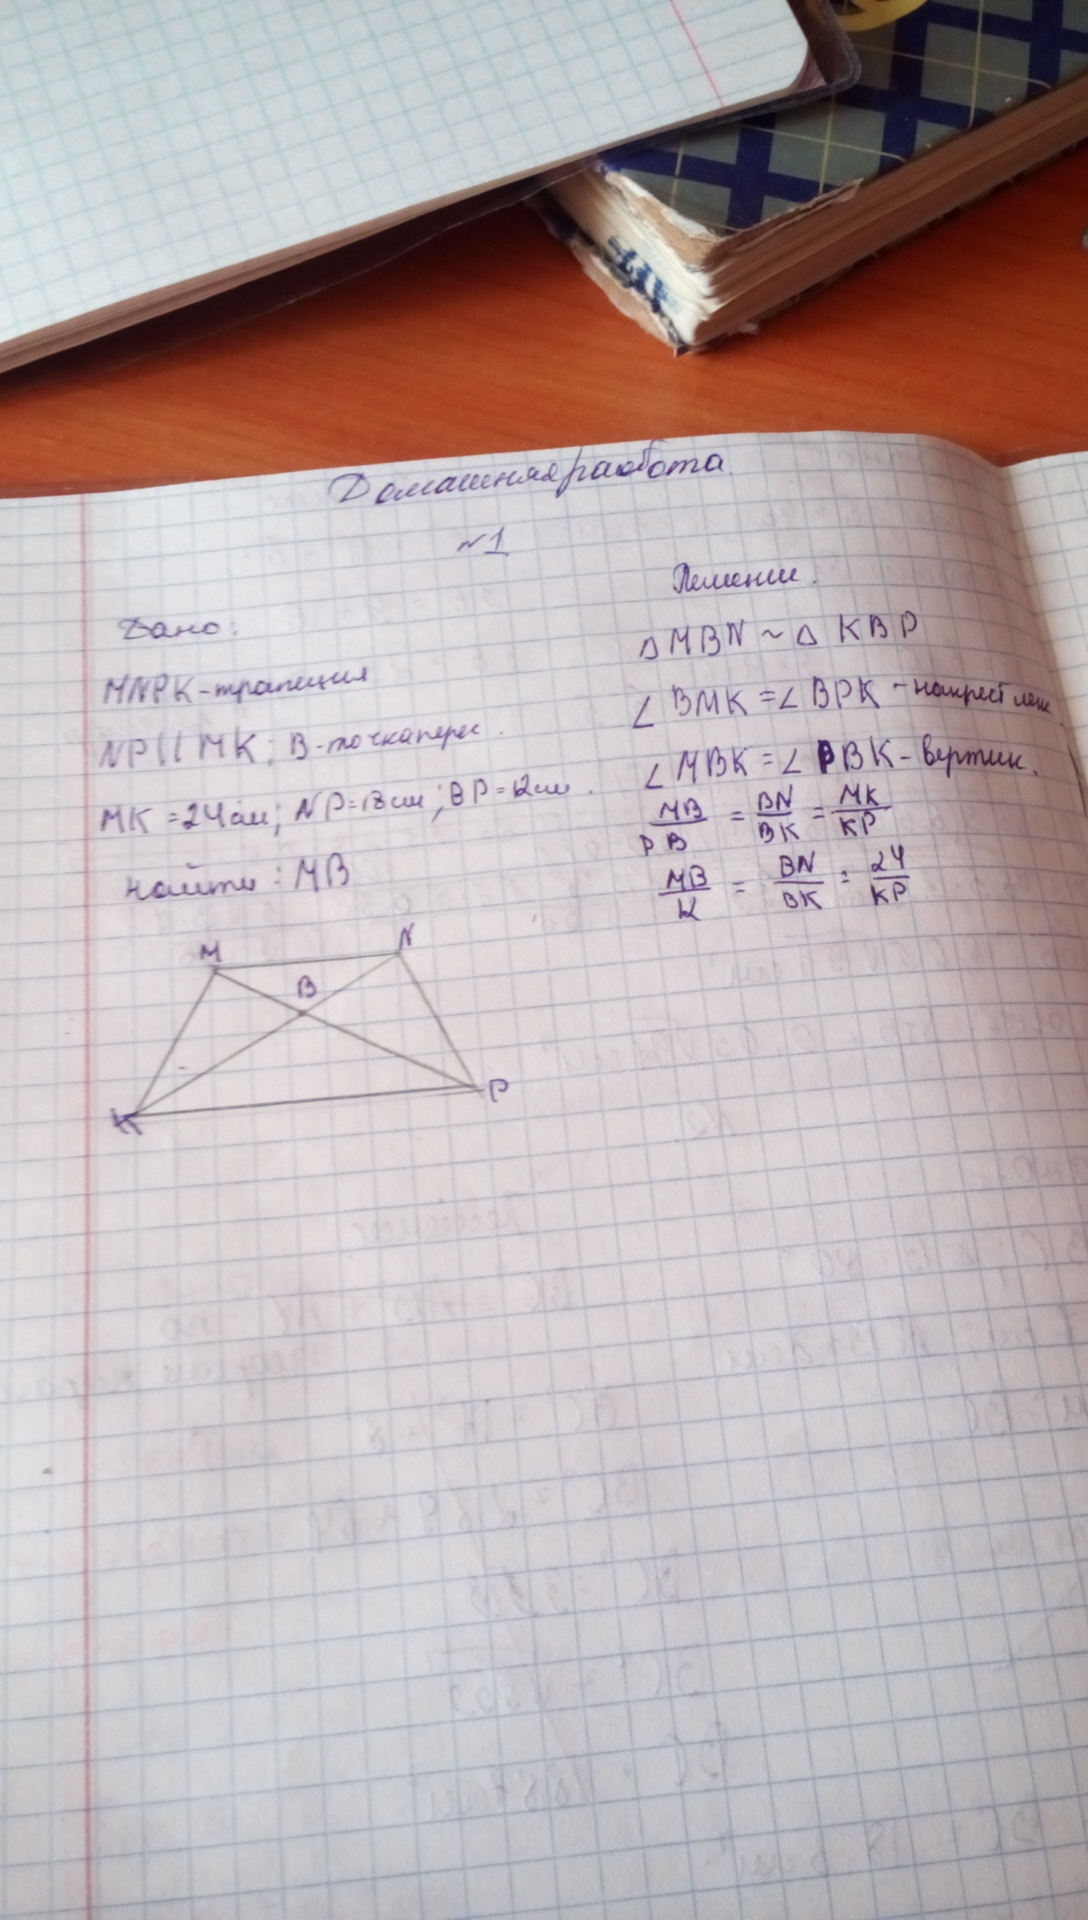 Домашняя работа.
№1
Дано:
MNPK - трапеция
NP || MK; B - точка перес.
MK = 24 см; NP = 18 см; BP = 12 см.
найти: MB
M
N
B
K
P
Решение.
△ MBN ~ △ KBP
∠ BMK = ∠ BPK - накрест леж.
∠ MBK = ∠ PBK - вертик.
MB/PB = BN/BK = MK/KP
MB/12 = BN/BK = 24/KP